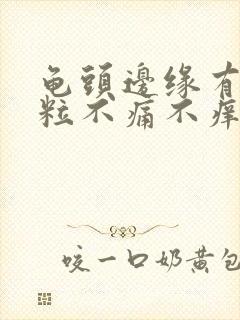 龟頭邊缘有
粒不痛不痒
咬一口奶黄包